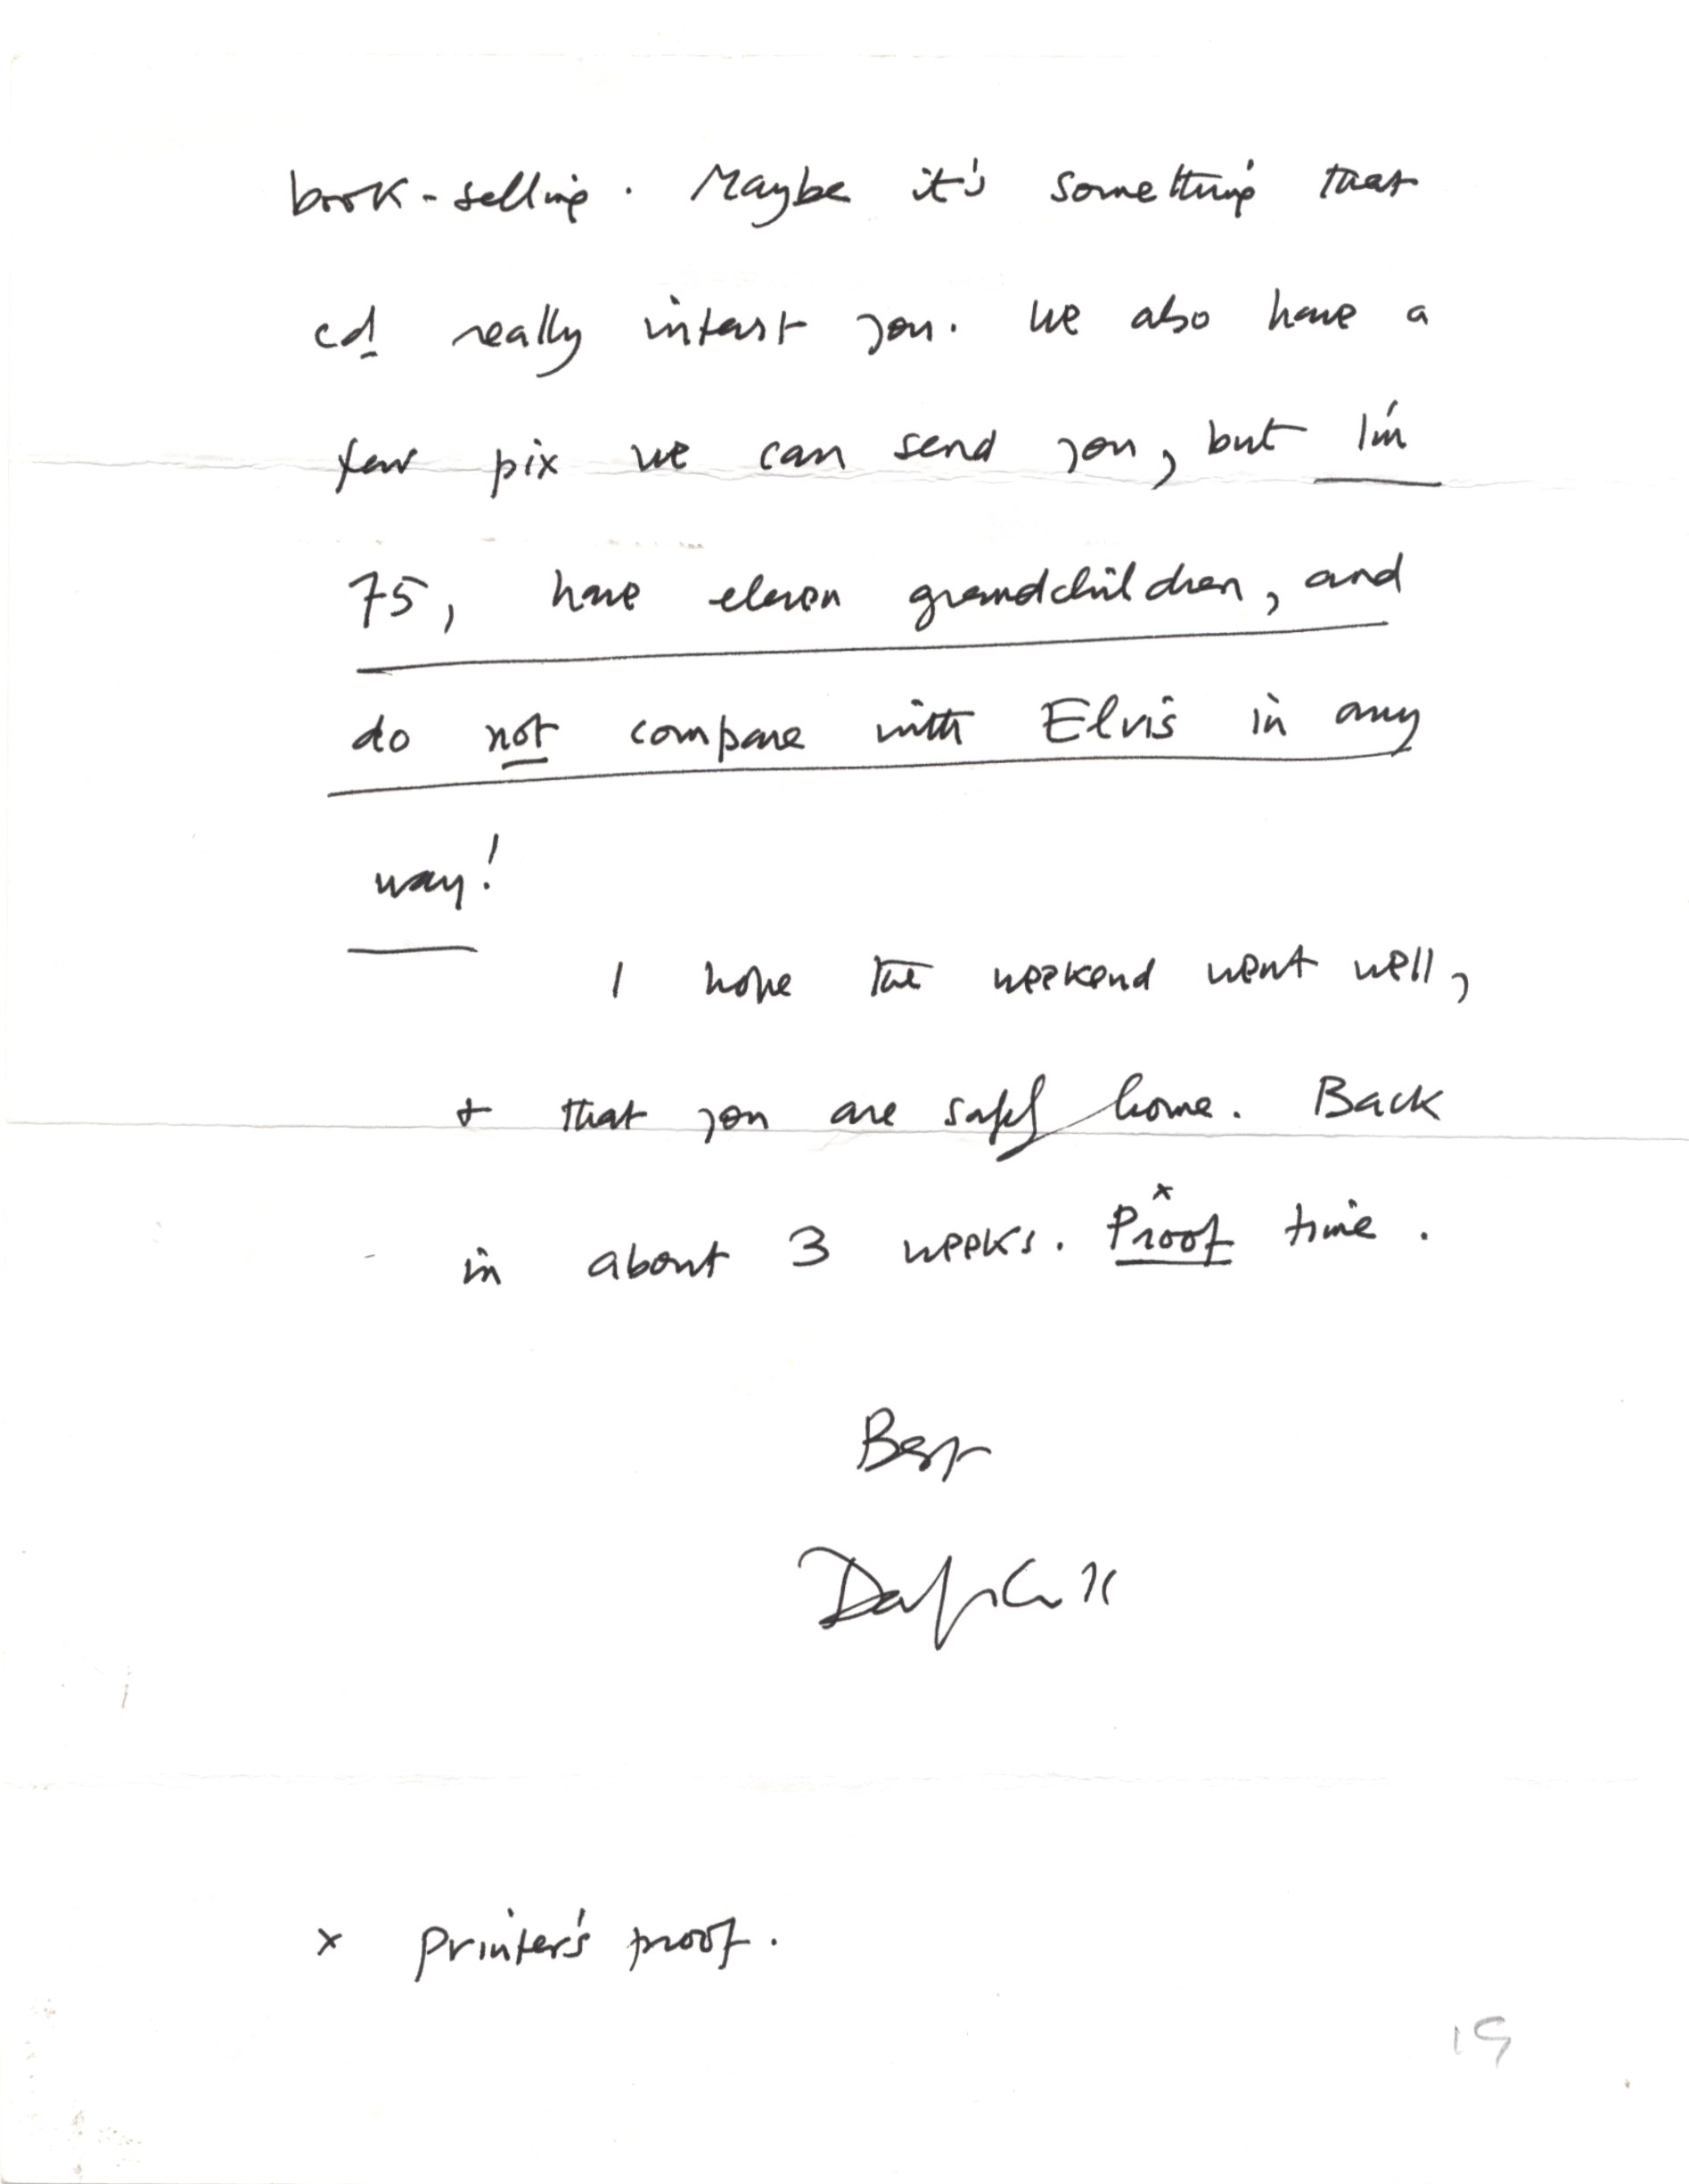 book-selling. Maybe it's something that
cd really interest you. We also have a
few pix we can send you, but I'm
75, have eleven grandchildren, and
do not compare with Elvis in any
way!
I hope the weekend went well,
+ that you are safely home. Back
in about 3 weeks. Proof x time.
Best
x printer's proof.